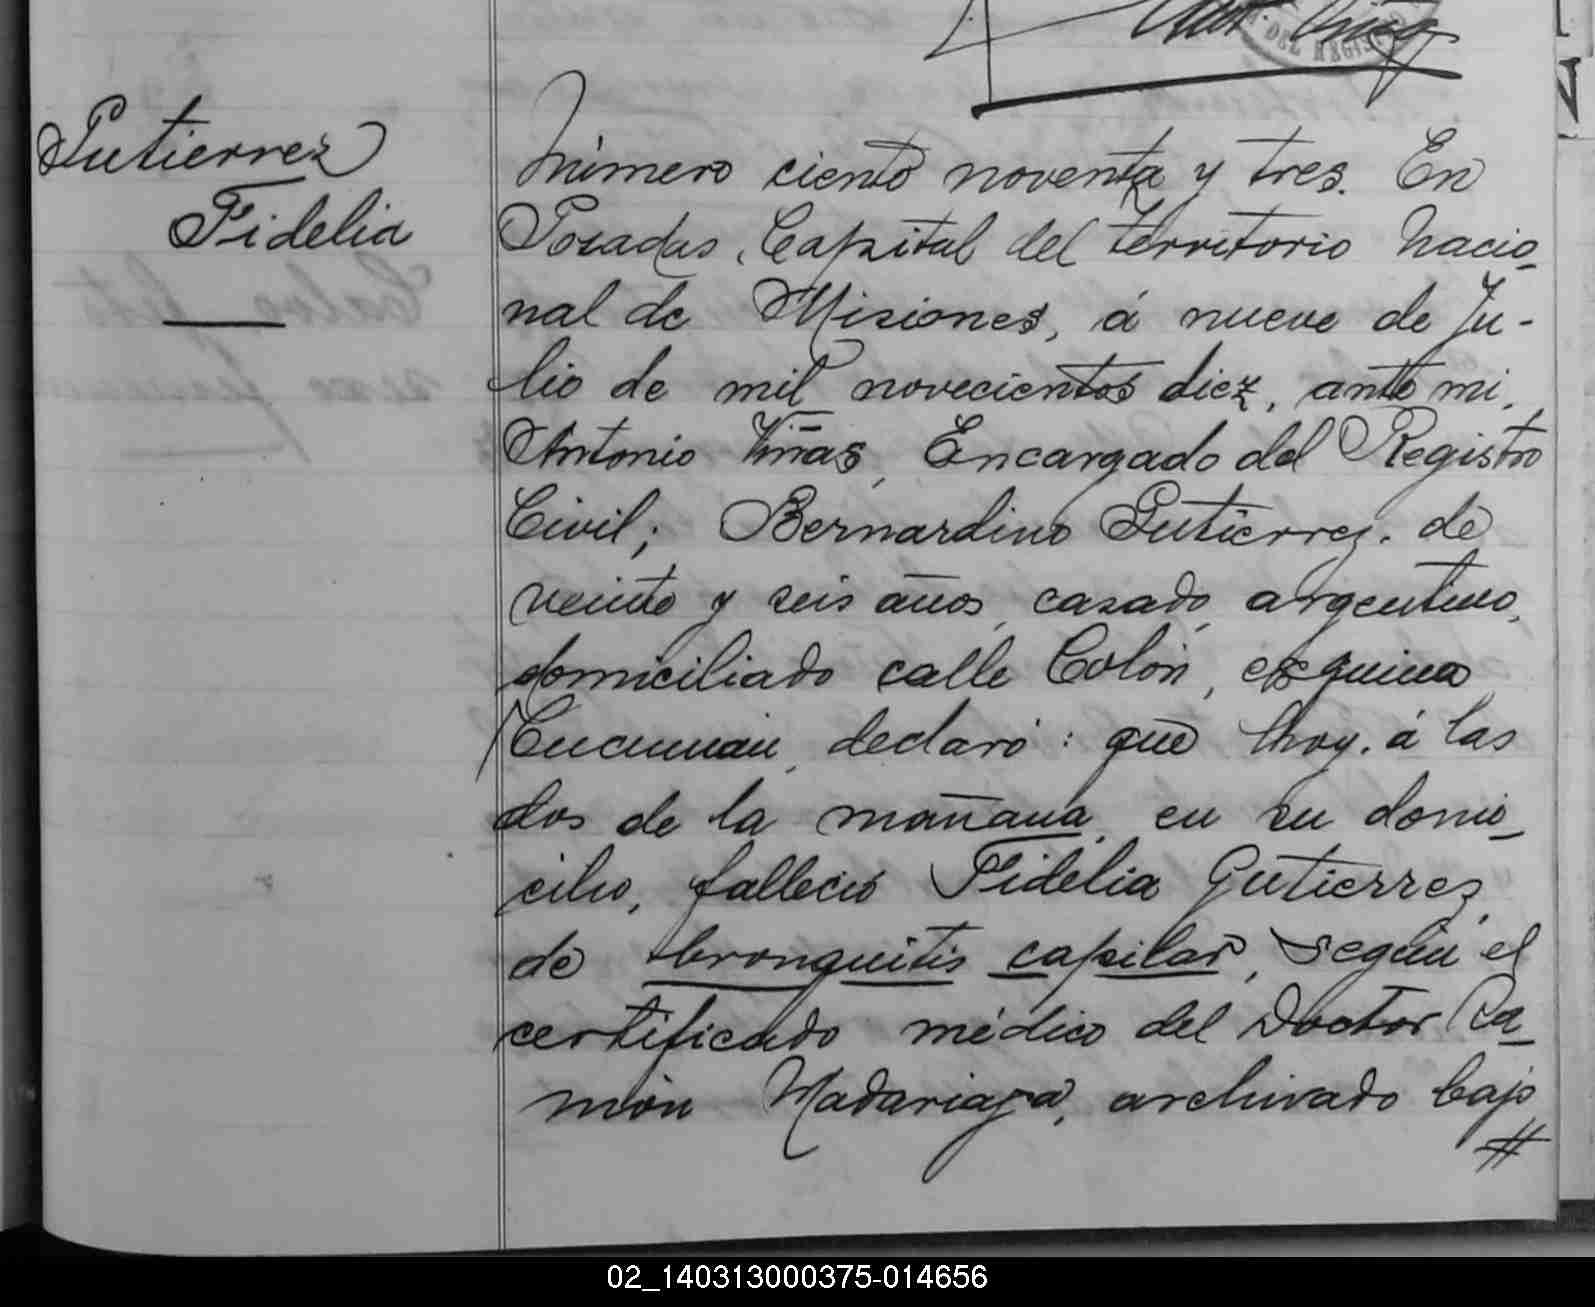 DEL REGIS
Gutierrez
Fidelia
Número ciento noventa y tres. En
Posadas, Capital del Territorio Nacio-
nal de Misiones, á nueve de Ju-
lio de mil novecientos diez, ante mi,
Antonio Viñas, Encargado del Registro
Civil; Bernardino Gutierrez, de
veinte y seis años, casado, argentino,
domiciliado calle Colón, esquina
Tucumán, declaró: que hoy, á las
dos de la mañana, en su domi-
cilio, falleció Fidelia Gutierrez,
de bronquitis capilar, según el
certificado médico del Doctor Ra-
món Madariaga, archivado bajo
#
02_140313000375-014656